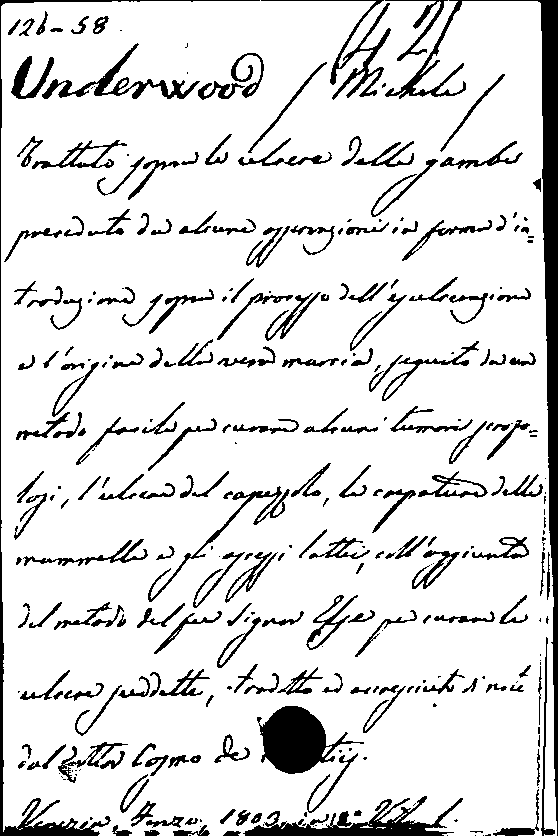 126-58
42
Underwood (Michele)
Trattato sopra le ulcere delle gambe
preceduto da alcune osservazioni in forma d'in=
troduzione sopra il processo dell'esulcerazione
e l'origine della vera marcia, seguito da un
metodo facile per curare alcuni tumori scrofo=
losi, l'ulcere del capezzolo, le crepature delle
mammelle e gli ascessi lattei, coll'aggiunta
del metodo del fu Signor Else per curare le
ulcere suddette, tradotto ed accresciuto di note
dal Cosmo de
Venezia, 1803 in 12°